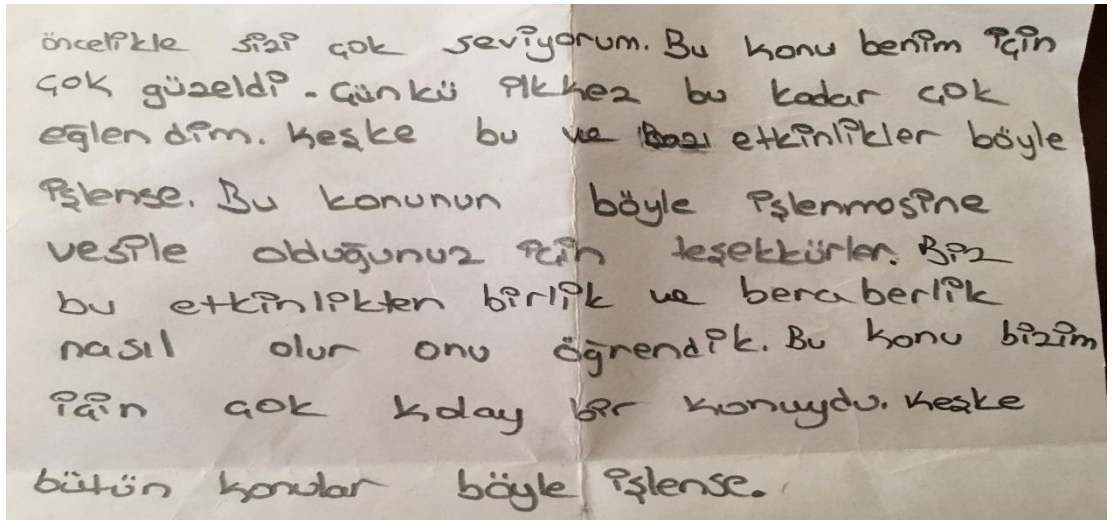 öncelikle sizi çok seviyorum. Bu konu benim için
çok güzeldi. Çünkü ilkkez bu kadar çok
eğlendim. Keşke bu ve bazı etkinlikler böyle
işlense. Bu konunun böyle işlenmesine
vesile olduğunuz için teşekkürler. Biz
bu etkinlikten birlik ve beraberlik
nasıl olur onu öğrendik. Bu konu bizim
için çok kolay bir konuydu. Keşke
bütün konular böyle işlense.